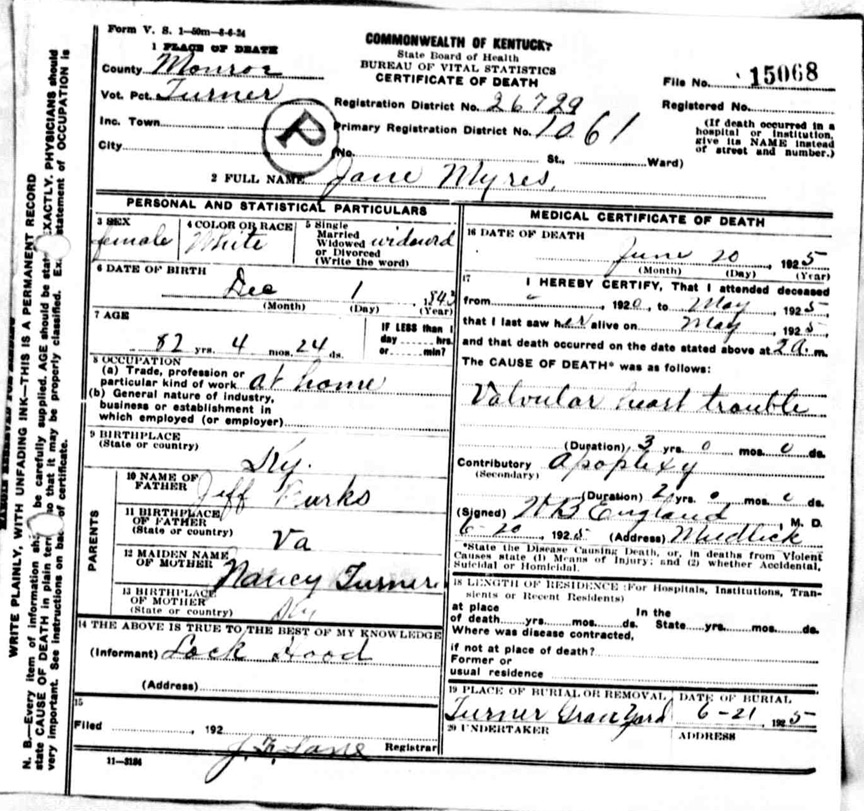 Form V. S. 1-50m-8-6-24
COMMONWEALTH OF KENTUCKY
State Board of Health
BUREAU OF VITAL STATISTICS
CERTIFICATE OF DEATH
1 PLACE OF DEATH
County Monroe
File No. 15068
Vot. Pct. Turner
Registration District No. 26729
Registered No.
Inc. Town
P
Primary Registration District No. 1061
(If death occurred in a hospital or institution, give its NAME instead of street and number.)
City
(No. St., Ward)
2 FULL NAME Jane Myres,
PERSONAL AND STATISTICAL PARTICULARS
3 SEX
female
4 COLOR OR RACE
White
5 Single
Married
Widowed
or Divorced
(Write the word)
widowed
6 DATE OF BIRTH
Dec 1, 1843
(Month) (Day) (Year)
7 AGE
82 yrs. 4 mos. 24 ds.
IF LESS than 1
day hrs.
or min?
8 OCCUPATION
(a) Trade, profession or
particular kind of work at home
(b) General nature of industry,
business or establishment in
which employed (or employer)
9 BIRTHPLACE
(State or country)
Ky.
PARENTS
10 NAME OF
FATHER Jeff
11 BIRTHPLACE
OF FATHER
(State or country)
Va
12 MAIDEN NAME
OF MOTHER Nancy Turner
13 BIRTHPLACE
OF MOTHER
(State or country) Ky
14 THE ABOVE IS TRUE TO THE BEST OF MY KNOWLEDGE
(Informant) Lock Hood
(Address)
15
Filed , 192
J. Lane Registrar
11-3184
MEDICAL CERTIFICATE OF DEATH
16 DATE OF DEATH
June 20, 1925
(Month) (Day) (Year)
17 I HEREBY CERTIFY, That I attended deceased
from , 1920, to May, 1925
that I last saw her alive on May, 1925
and that death occurred on the date stated above at 2 a. m.
The CAUSE OF DEATH* was as follows:
Valvular heart trouble
(Duration) 3 yrs. 0 mos. 0 ds.
Contributory Apoplexy
(Secondary)
(Duration) 2 yrs. 0 mos. 0 ds.
(Signed) England M. D.
6-20, 1925 (Address) Mudlick
*State the Disease Causing Death, or, in deaths from Violent
Causes state (1) Means of Injury; and (2) whether Accidental,
Suicidal or Homicidal.
18 LENGTH OF RESIDENCE (For Hospitals, Institutions, Tran-
sients or Recent Residents)
at place In the
of death yrs. mos. ds. State yrs. mos. ds.
Where was disease contracted,
if not at place of death?
Former or
usual residence
19 PLACE OF BURIAL OR REMOVAL
Turner Grave Yard
DATE OF BURIAL
6-21, 1925
20 UNDERTAKER
ADDRESS
WRITE PLAINLY, WITH UNFADING INK—THIS IS A PERMANENT RECORD
N. B.—Every item of information should be carefully supplied. AGE should be stated EXACTLY. PHYSICIANS should
state CAUSE OF DEATH in plain terms so that it may be properly classified. Exact statement of OCCUPATION is
very important. See instructions on back of certificate.